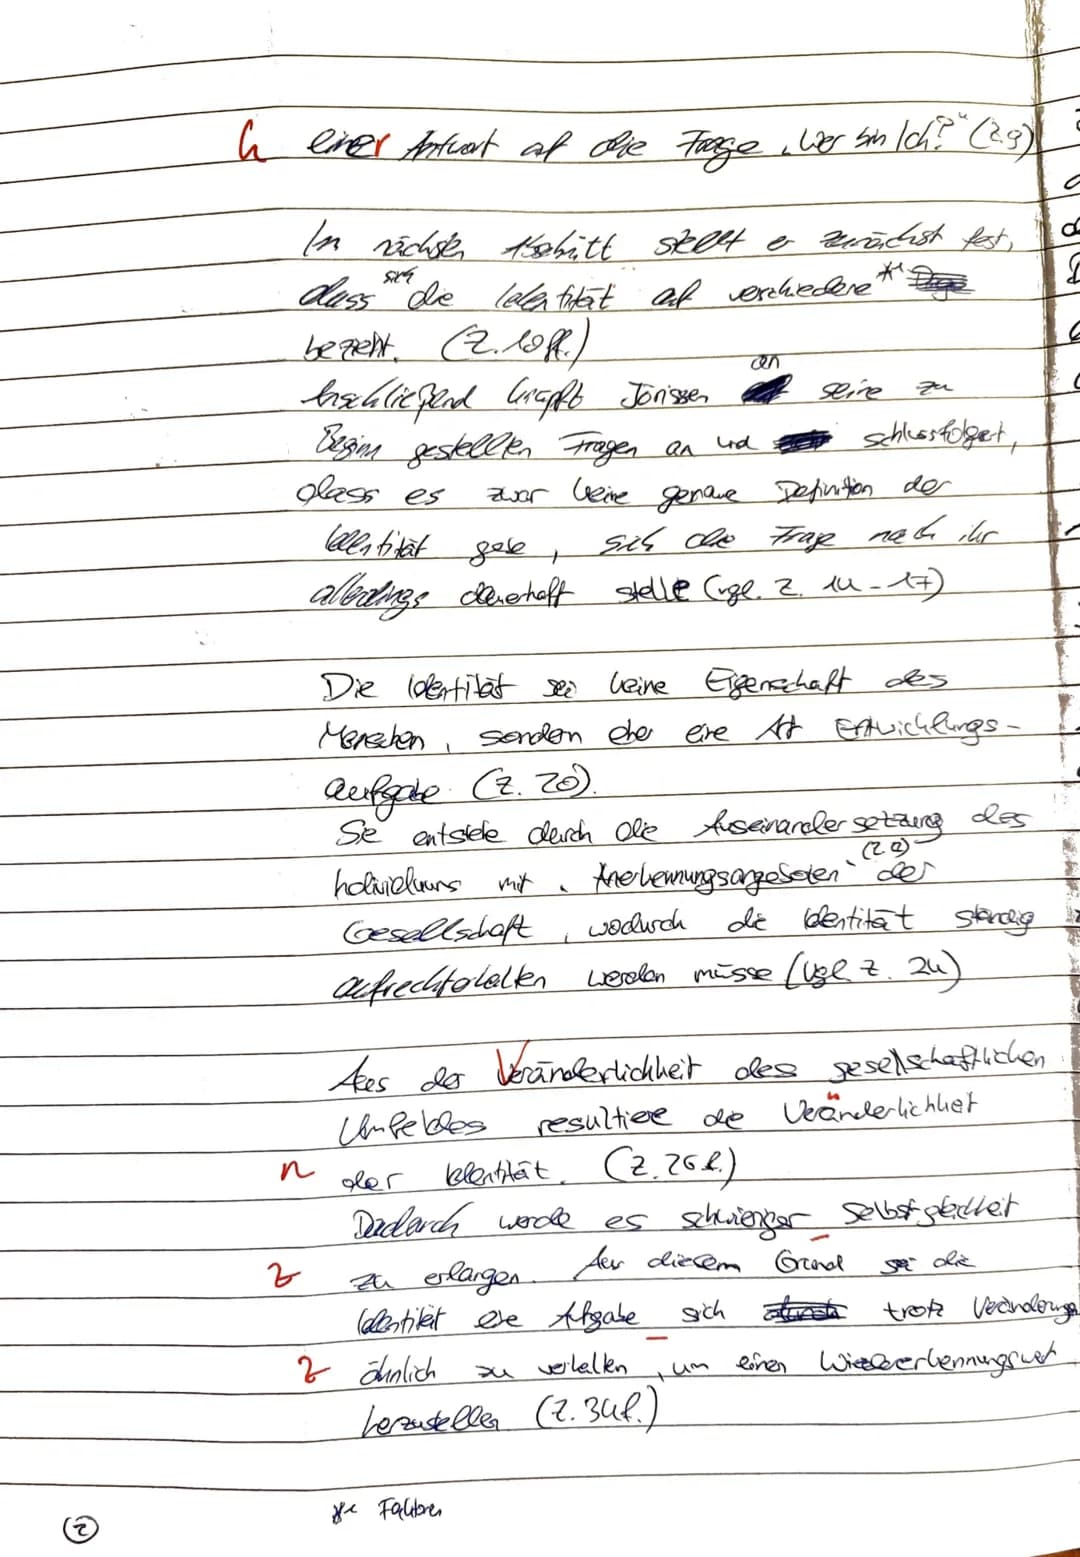 G einer Antwort auf die Frage „Wer bin Ich?" (Z.9)
Im nächsten Abschnitt stellt er zunächst fest,
dass sich die Identität auf verschiedene *¹
bezieht. (Z. 10ff.)
Anschließend knüpft Jörissen an seine zu
Beginn gestellten Fragen an und schlussfolgert,
dass es zwar keine genaue Definition der
Identität gebe, sich die Frage nach ihr
allerdings dauerhaft stelle (vgl. Z. 14-17)
Die Identität sei keine Eigenschaft des
Menschen, sondern eher eine Art Entwicklungs-
aufgabe. (Z. 20).
Sie entstehe durch die Auseinandersetzung des
Individuums mit „Anerkennungsangeboten" der
Gesellschaft, wodurch die Identität ständig
aufrechterhalten werden müsse (vgl. Z. 24)
Aus der Veränderlichkeit des gesellschaftlichen
Umfeldes resultiere die Veränderlichkeit
n der Identität. (Z. 26f.)
Dadurch werde es schwieriger Selbstgleichheit
Z zu erlangen. Aus diesem Grund sei die
Identität eine Aufgabe sich trotz Veränderungen
Z ähnlich zu verhalten, um einen Wiedererkennungswert
herzustellen (Z. 34f.)
② *¹ Faktoren